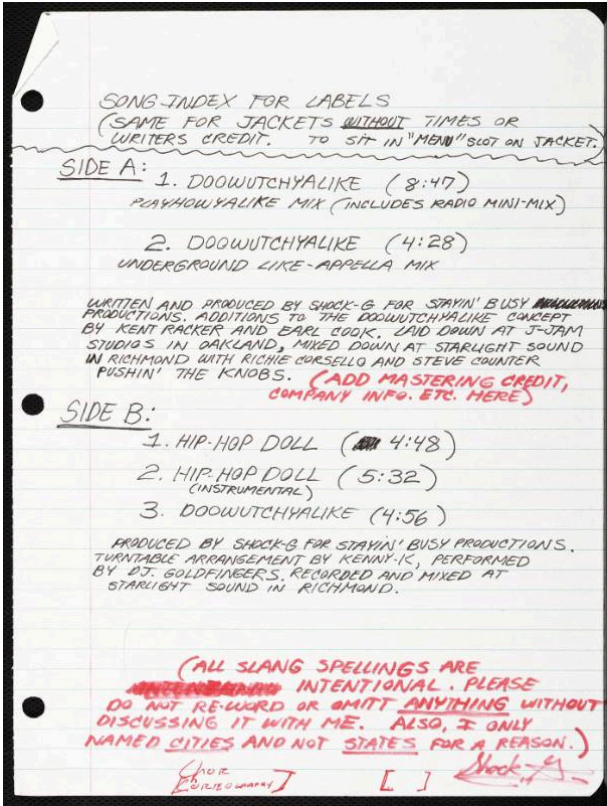 SONG INDEX FOR LABELS
(SAME FOR JACKETS WITHOUT TIMES OR
WRITERS CREDIT. TO SIT IN "MENU" SLOT ON JACKET.)
SIDE A:
1. DOOWUTCHYALIKE (8:47)
PLAYHOWYALIKE MIX (INCLUDES RADIO MINI-MIX)
2. DOOWUTCHYALIKE (4:28)
UNDERGROUND LIKE-APPELLA MIX
WRITTEN AND PRODUCED BY SHOCK-G FOR STAYIN' BUSY
PRODUCTIONS. ADDITIONS TO THE DOOWUTCHYALIKE CONCEPT
BY KENT RACKER AND EARL COOK. LAID DOWN AT J-JAM
STUDIOS IN OAKLAND, MIXED DOWN AT STARLIGHT SOUND
IN RICHMOND WITH RICHIE CORSELLO AND STEVE COUNTER
PUSHIN' THE KNOBS. (ADD MASTERING CREDIT,
COMPANY INFO. ETC. HERE)
SIDE B:
1. HIP-HOP DOLL (4:48)
2. HIP-HOP DOLL (5:32)
(INSTRUMENTAL)
3. DOOWUTCHYALIKE (4:56)
PRODUCED BY SHOCK-G FOR STAYIN' BUSY PRODUCTIONS.
TURNTABLE ARRANGEMENT BY KENNY-K, PERFORMED
BY DJ. GOLDFINGERS. RECORDED AND MIXED AT
STARLIGHT SOUND IN RICHMOND.
(ALL SLANG SPELLINGS ARE
INTENTIONAL. PLEASE
DO NOT RE-WORD OR OMITT ANYTHING WITHOUT
DISCUSSING IT WITH ME. ALSO, I ONLY
NAMED CITIES AND NOT STATES FOR A REASON.)
Shock-G
[ ]